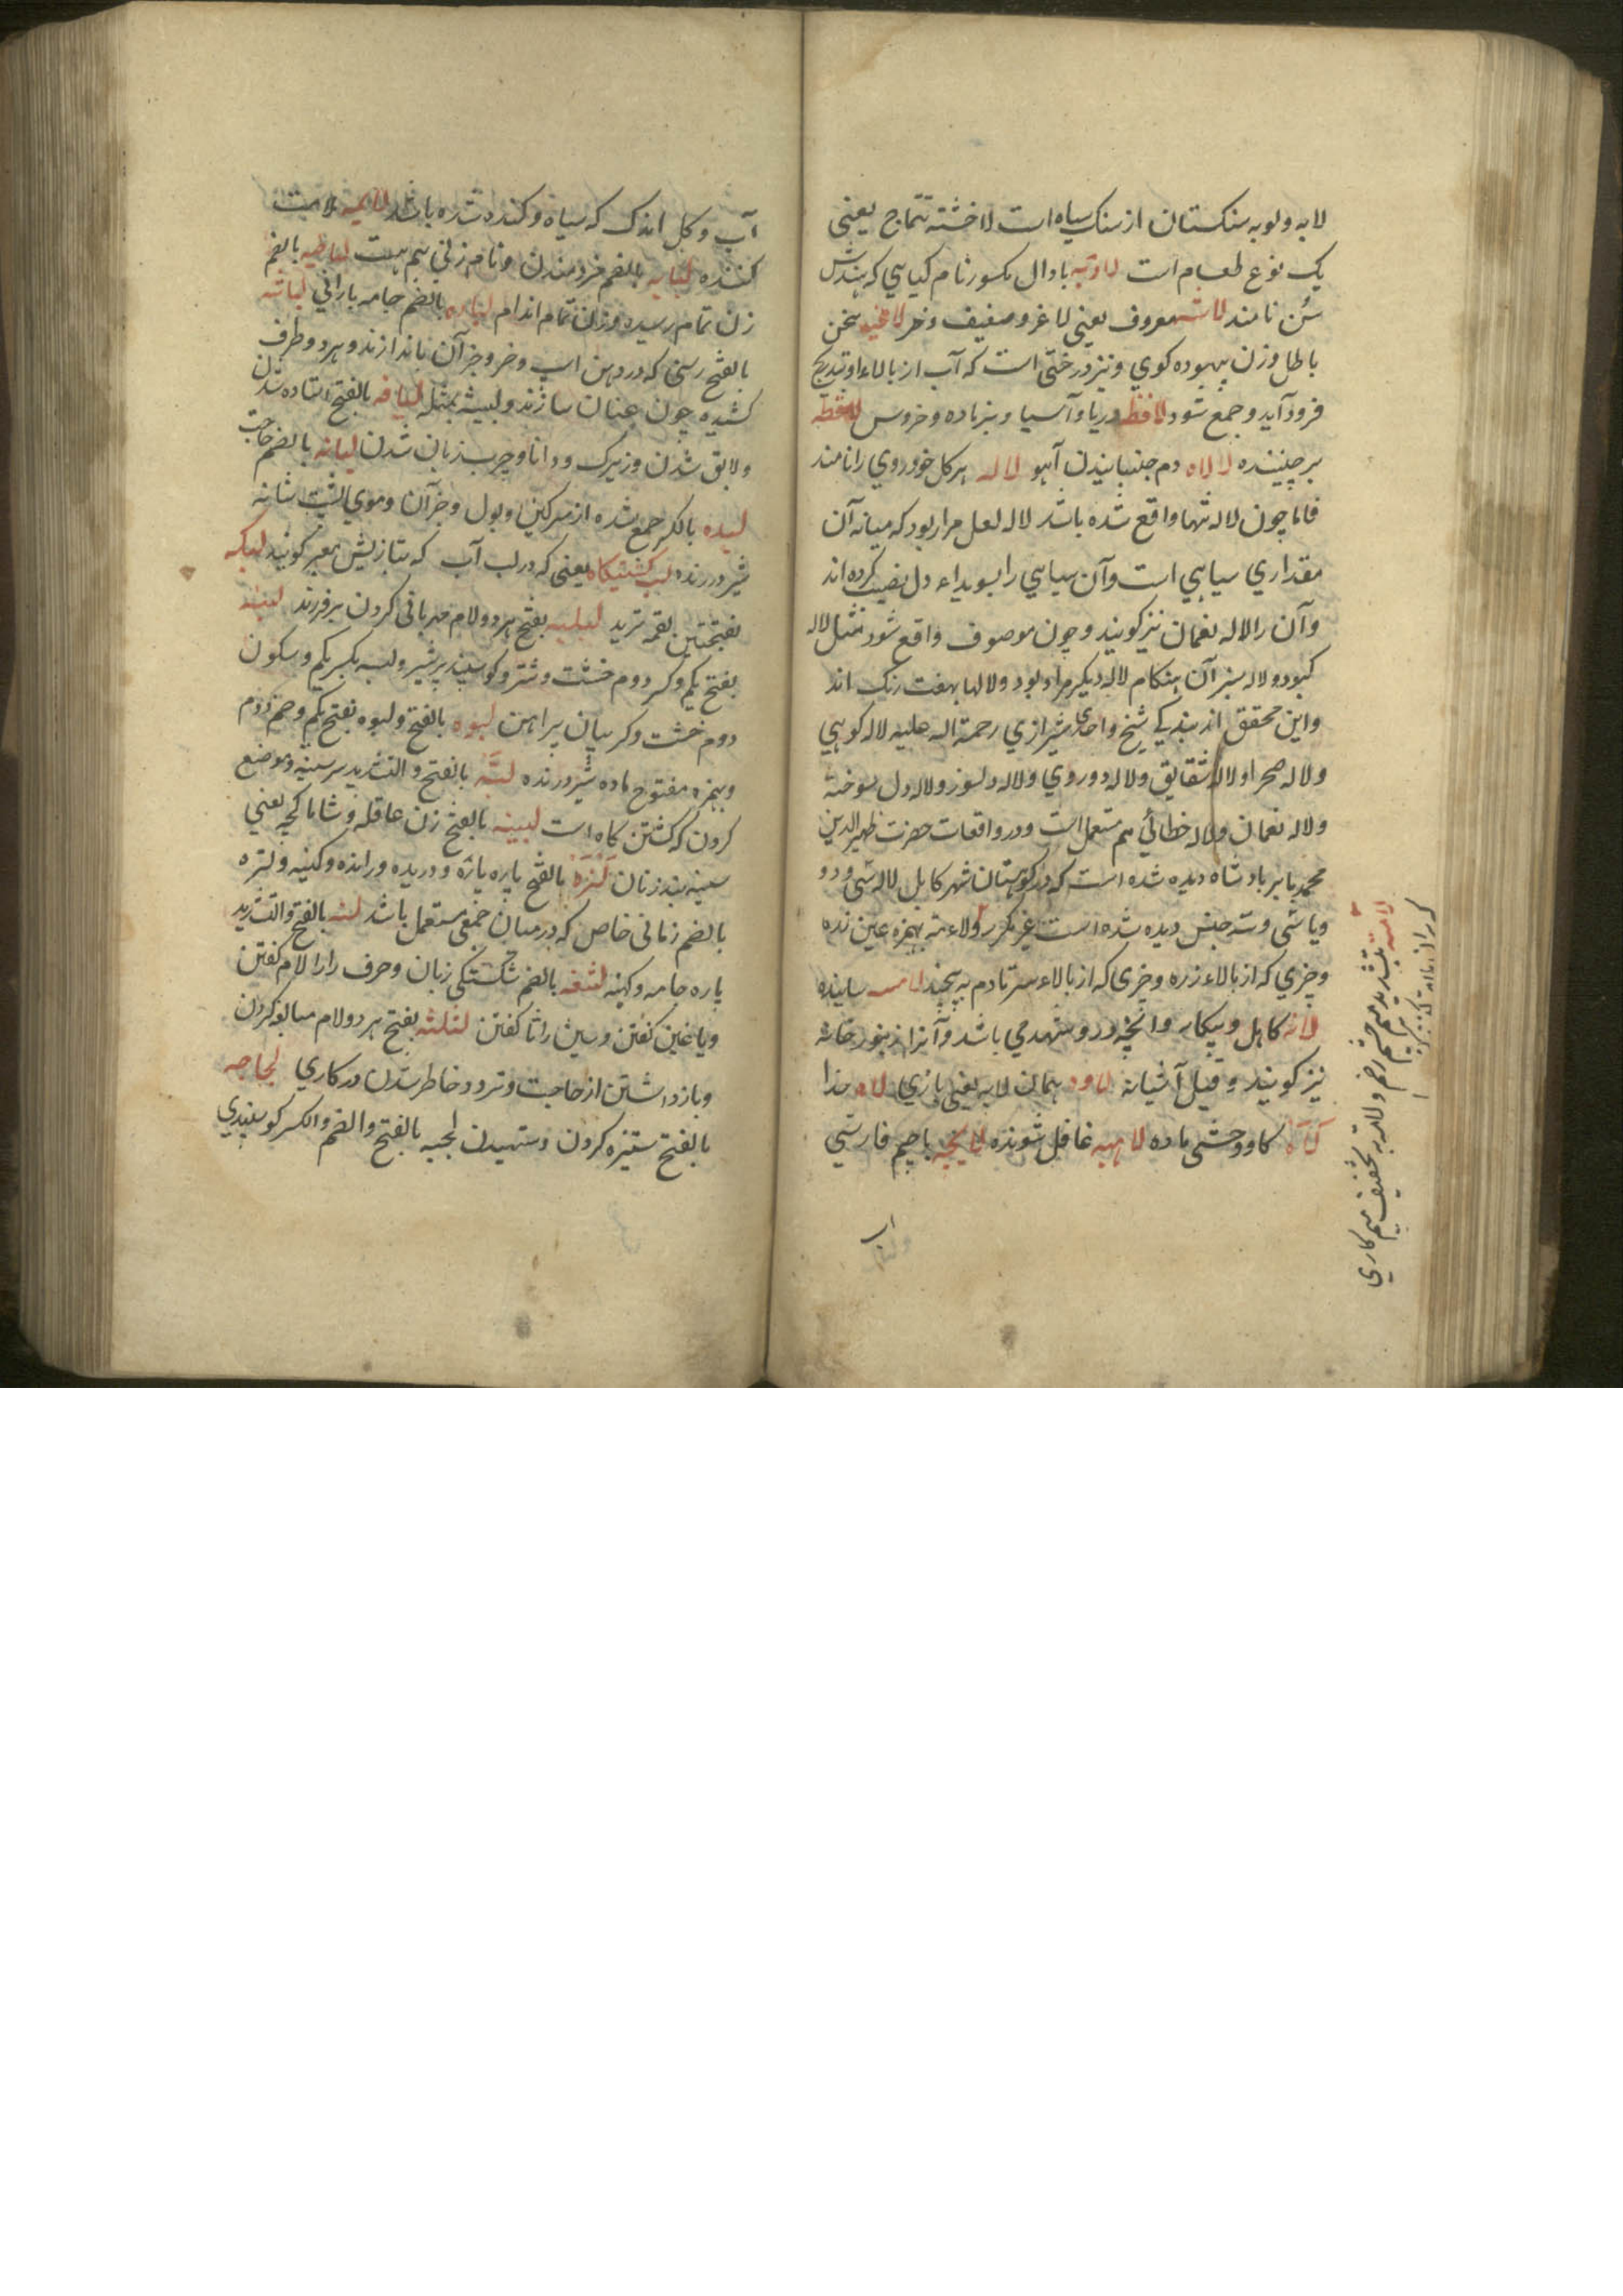 لابه ولوبه سنکستان از سنک سیاه است لاخشته تتماج یعنی
یک نوع طعام است لادنه با دال مکسور نام کیاهی که بهندش
سن نامند لاشه معروف یعنی لاغر و ضعیف و خر لاغیه سخن
باطل و زن بیهوده کوی و نیز درختی است که آب از بالاء او بتدریج
فرود آید و جمع شود لافظه دریا و آسیا و بز ماده و خروس لاقطه
برچیننده لالاه دم جنبانیدن آهو لاله هر کل خودروی را نامند
فاما چون لاله تنها واقع شده باشد لاله لعل مراد بود که میانه آن
مقداری سیاهی است و آن سیاهی را بسویداء دل نصیب کرده اند
و آن را لاله نعمان نیز کویند و چون موصوف واقع شود مثل لاله
کبود و لاله سبز آن هنکام لاله دیکر مراد بود و لالها بهفت رنک اند
و این محقق از بندکی شیخ واحدی شیرازی رحمة اله علیه لاله کوهی
و لاله صحرا و لاله شقایق و لاله دوروی و لاله دلسوز و لاله دل سوخته
و لاله نعمان و لاله خطائی هم مستعمل است و در واقعات حضرت ظهیر الدین
محمد بابر بادشاه دیده شده است که در کوهستان شهر کابل لاله سی و دو
و یا سی و سه جنس دیده شده است غیر مکرر لاءمه بهمزه عین زده
و چیزی که از بالاء زره و چیزی که از بالاء سر تا دم به پیچند لامسه ساینده
لانه کاهل و بیکار و انچه در و شهد می باشد و آنرا زنبور خانه
نیز کویند و قیل آشیانه لاوه همان لابه یعنی بازی لاه خدا
لاه کاو وحشی ماده لاهیه غافل شونده لایچه با جیم فارسی
لامه بتشدید میم چشم زخم و للامه بتخفیف میم کاری
آب و کل اندک که سیاه و کنده شده باشد لایمه ملامت
کننده لبابه بالضم خردمندن و نام زنی هم هست لباخیه بالضم
زن تمام رسیده و زن تمام اندام لباده بالضم جامه بارانی لباشه
بالفتح رسنی که در دهن اسپ و خر و جز آن باندازند و هر دو طرف
کشیده چون عنان سازند و لبیشه بمثله لباقه بالفتح استاده شدن
و لایق شدن و زیرک و دانا و چرب زبان شدن لبانه بالضم حاجت
لبده بالکسر جمع شده از سرکین و بول و جز آن و موی پشت شانه
شیر درنده لب کشتیکاه یعنی که در لب آب که بتازیش معبر کویند لبکه
بفتحتین لقمه ترید لبلبه بفتح هر دو لام مهربانی کردن بر فرزند لبنه
بفتح یکم و کسر دوم خشت و شتر و کوسپند پر شیر و لبنه بکسر یکم و سکون
دوم خشت و کریبان پیراهن لبوه بالفتح و لبوه بفتح یکم و ضم دوم
و بهمزه مفتوح ماده شیر درنده لبه بالفتح و التشدید سر سینه و موضع
کردن که کشتن کاه است لبیبه بالفتح زن عاقله و شاماکچه یعنی
سینه بند زنان لتره بالفتح پاره پاره و دریده و رانده و کهنه و لتره
بالضم زبانی خاص که در میان جمعی مستعمل باشد لته بالفتح و التشدید
پاره جامه و کهنه لثغه بالضم شکستکی زبان و حرف را را لام کفتن
و یا غین کفتن و سین را ثا کفتن لثلثه بفتح هر دو لام مبالغه کردن
و باز داشتن از حاجت و تردد خاطر شدن در کاری لجاجه
بالفتح ستیزه کردن و ستهیدن لجبه بالفتح و الضم و الکسر کوسپندی